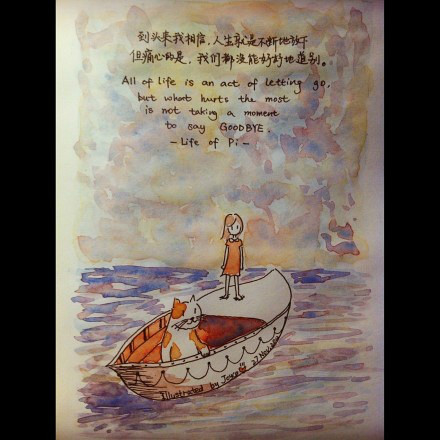 到头来我相信,人生就是不断地放下
但痛心的是,我们都没能好好地道别。
All of life is an act of letting go,
but whant hurts the most
is not taking a moment
to say GOODBYE.
- Life of Pi -
Illustrated by Joyce
27